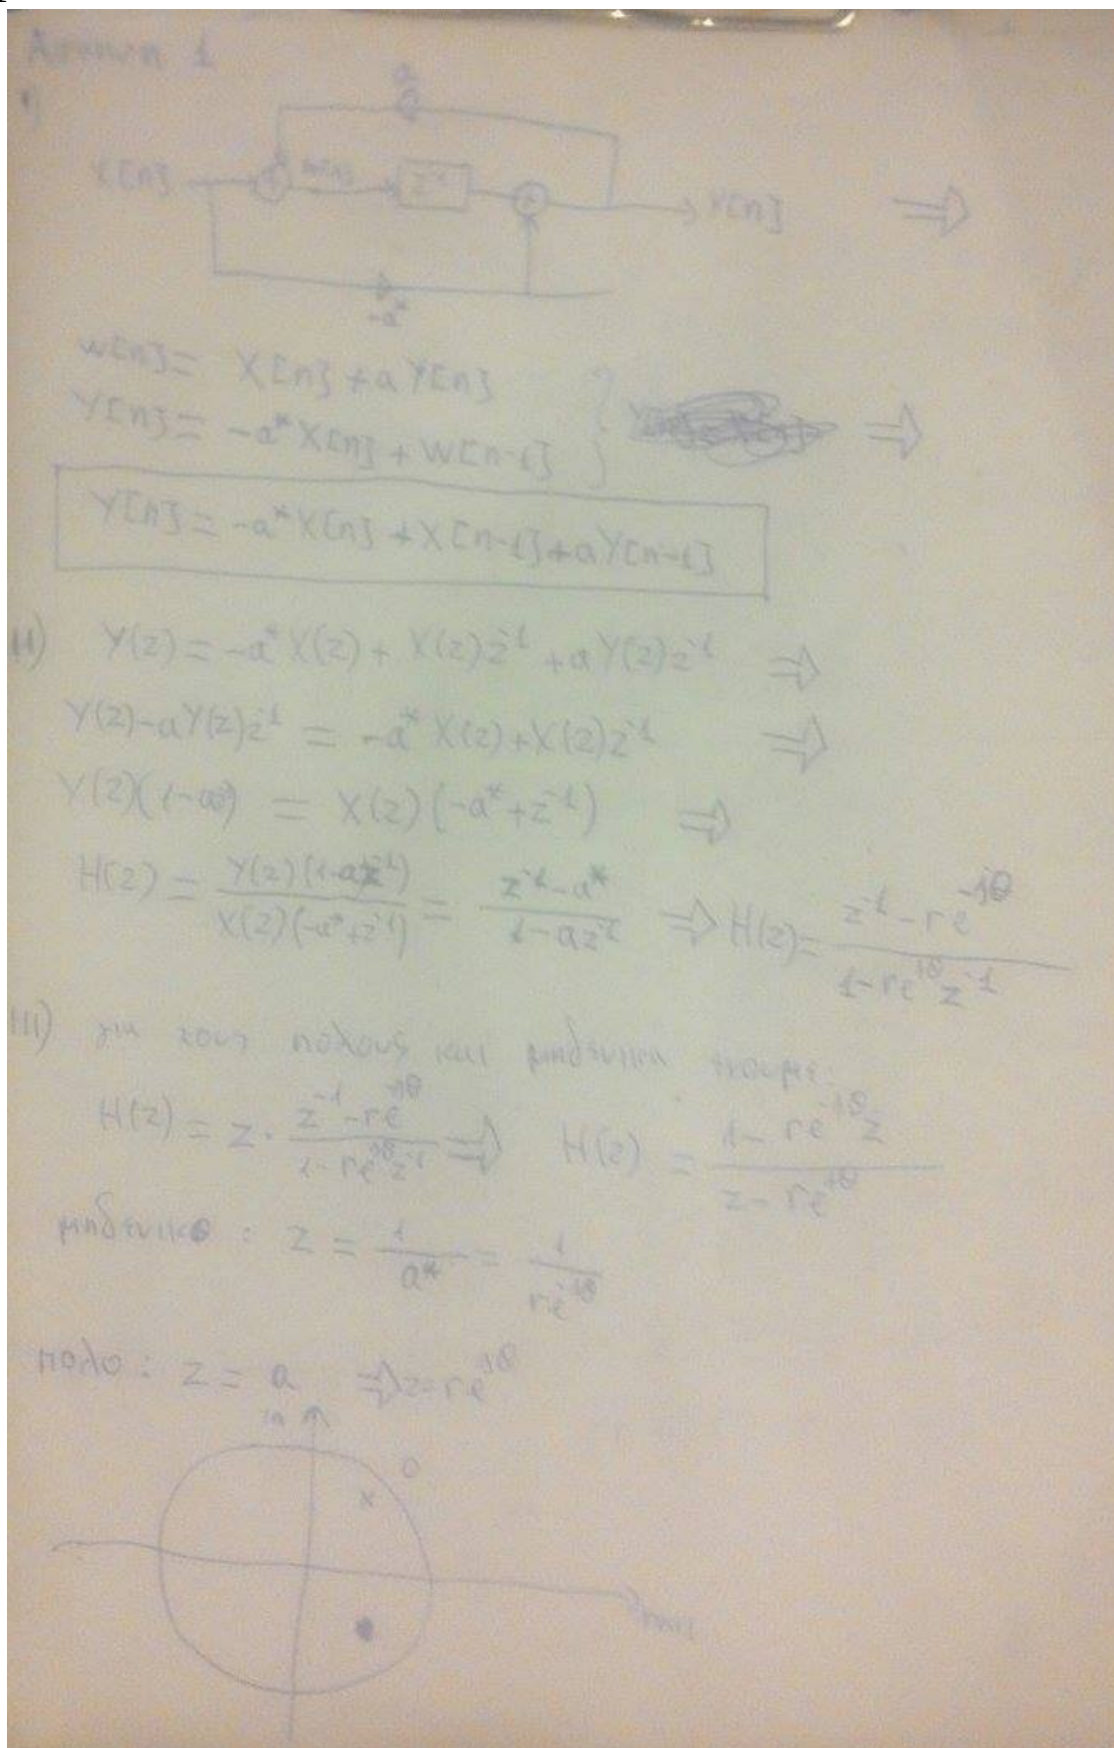 Άσκηση 1
I)
a
X[n] + W[n] z^-1 + Y[n] ⇒
-a*
W[n] = X[n] + aY[n]
Y[n] = -a*X[n] + W[n-1] } ⇒
Y[n] = -a*X[n] + X[n-1] + aY[n-1]
II) Y(z) = -a*X(z) + X(z)z^-1 + aY(z)z^-1 ⇒
Y(z) - aY(z)z^-1 = -a*X(z) + X(z)z^-1 ⇒
Y(z)(1-a) = X(z)(-a* + z^-1) ⇒
H(z) = Y(z)(1-az^-1) / X(z)(-a*+z^-1) = z^-1 - a* / 1 - az^-1 ⇒ H(z) = z^-1 - re^-jθ / 1 - re^jθ z^-1
III) για τους πόλους και μηδενικά έχουμε:
H(z) = z · z^-1 - re^-jθ / 1 - re^jθ z^-1 ⇒ H(z) = 1 - re^-jθ z / z - re^jθ
μηδενικό : z = 1 / a* = 1 / re^-jθ
πόλο : z = a ⇒ z = re^jθ
Im